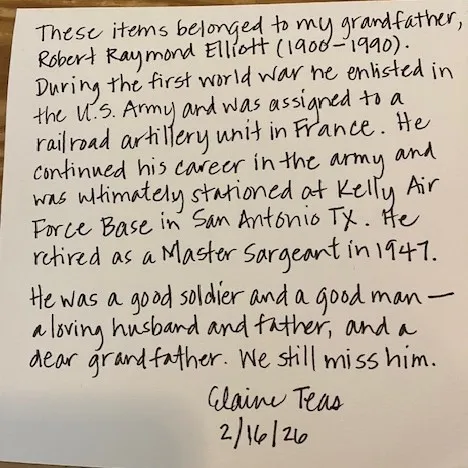 These items belonged to my grandfather,
Robert Raymond Elliott (1900-1990).
During the first world war he enlisted in
the U.S. Army and was assigned to a
railroad artillery unit in France. He
continued his career in the army and
was ultimately stationed at Kelly Air
Force Base in San Antonio TX. He
retired as a Master Sargeant in 1947.
He was a good soldier and a good man —
a loving husband and father, and a
dear grandfather. We still miss him.
Elaine Teas
2/16/26